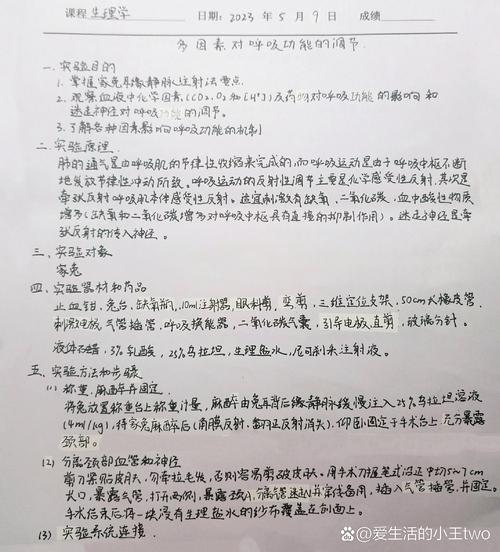 课程 生理学 日期: 2023 年 5 月 9 日 成绩
多因素对呼吸功能的调节.
一. 实验目的
1. 掌握家兔耳缘静脉注射法要点.
2. 观察血液中化学因素(CO2, O2 和[H+])及药物对呼吸功能的影响和
迷走神经对呼吸功能的调节。
3. 了解各种因素影响呼吸功能的机制
二. 实验原理
肺的通气是由呼吸肌的节律性收缩来完成的,而呼吸运动是由于呼吸中枢不断
地发放节律性冲动所致。呼吸运动的反射性调节主要是化学感受性反射,其次是
牵张反射呼吸肌本体感受性反射。适宜刺激有缺氧、二氧化碳,血中酸性物质
增多(缺氧和二氧化碳增多对呼吸中枢具有直接的抑制作用)。迷走神经是牵
张反射的传入神经。
三. 实验对象
家兔
四. 实验器材和药品
止血钳,兔台,缺氧瓶,10ml注射器,眼科剪,弯剪,三维定位支架,50cm大橡皮管.
刺激电极,气管插管,呼吸换能器,二氧化碳气囊,引导电极,直剪,玻璃分针。
液体石蜡,3%乳酸,25%乌拉坦,生理盐水,尼可刹米注射液。
五. 实验方法和步骤
(1) 称重,麻醉并固定.
将兔放置称重台上称重计量,麻醉由兔耳背后缘静脉缓慢注入25%乌拉坦溶液
(4ml/kg),待家兔麻醉后(角膜反射,翻正反射消失),仰卧固定于手术台上,充分暴露
颈部。
(2) 分离颈部血管和神经
剪刀紧贴皮肤,勿牵拉毛发,否则容易剪破皮肤。用手术刀握笔式沿正中切5~7cm
大口,暴露气管,打开两侧,暴露,分离并穿线备用,插入气管插管,并固定。
手术结束后将一块浸有生理盐水的纱布覆盖在创面上。
(3) 实验系统连接.
@爱生活的小王two